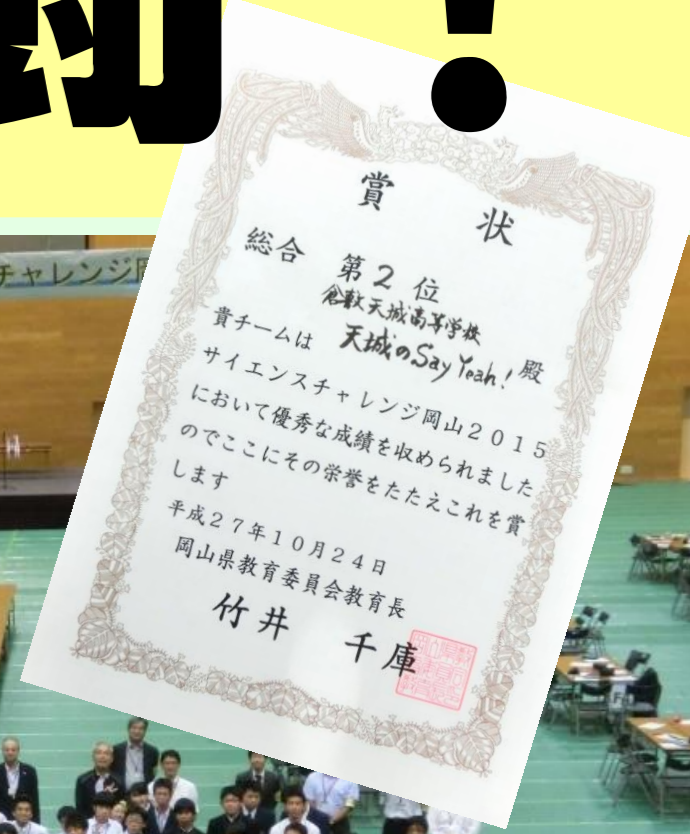 ！
チャレンジ
賞状
総合　第２位
倉敷天城高等学校
貴チームは　天城のSay Yeah!　殿
サイエンスチャレンジ岡山２０１５
において優秀な成績を収められました
のでここにその栄誉をたたえこれを賞
します
平成２７年１０月２４日
岡山県教育委員会教育長
竹井　千庫